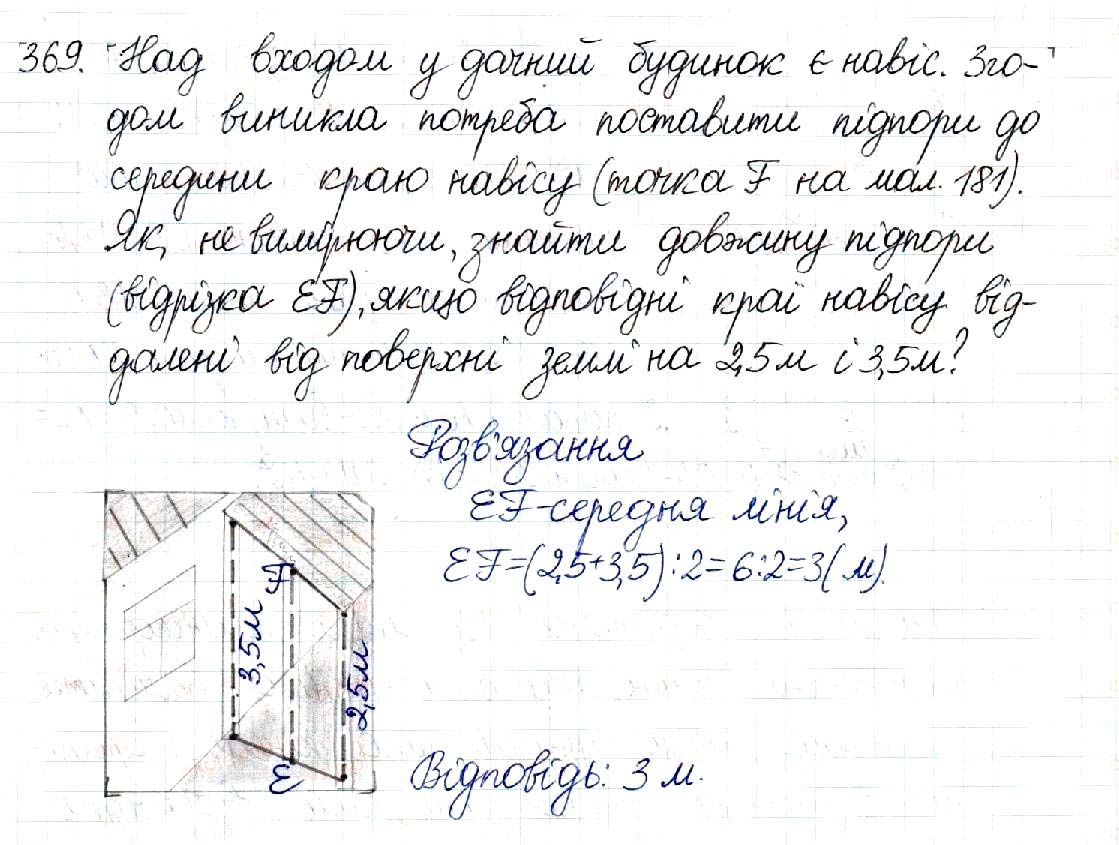 369. Над входом у дачний будинок є навіс. Зго-
дом виникла потреба поставити підпори до
середини краю навісу (точка F на мал. 181).
Як, не вимірюючи, знайти довжину підпори
(відрізка EF), якщо відповідні краї навісу від-
далені від поверхні землі на 2,5м і 3,5м?
Розв'язання
EF-середня лінія,
EF=(2,5+3,5):2=6:2=3(м).
F
3,5м
2,5м
E
Відповідь: 3 м.